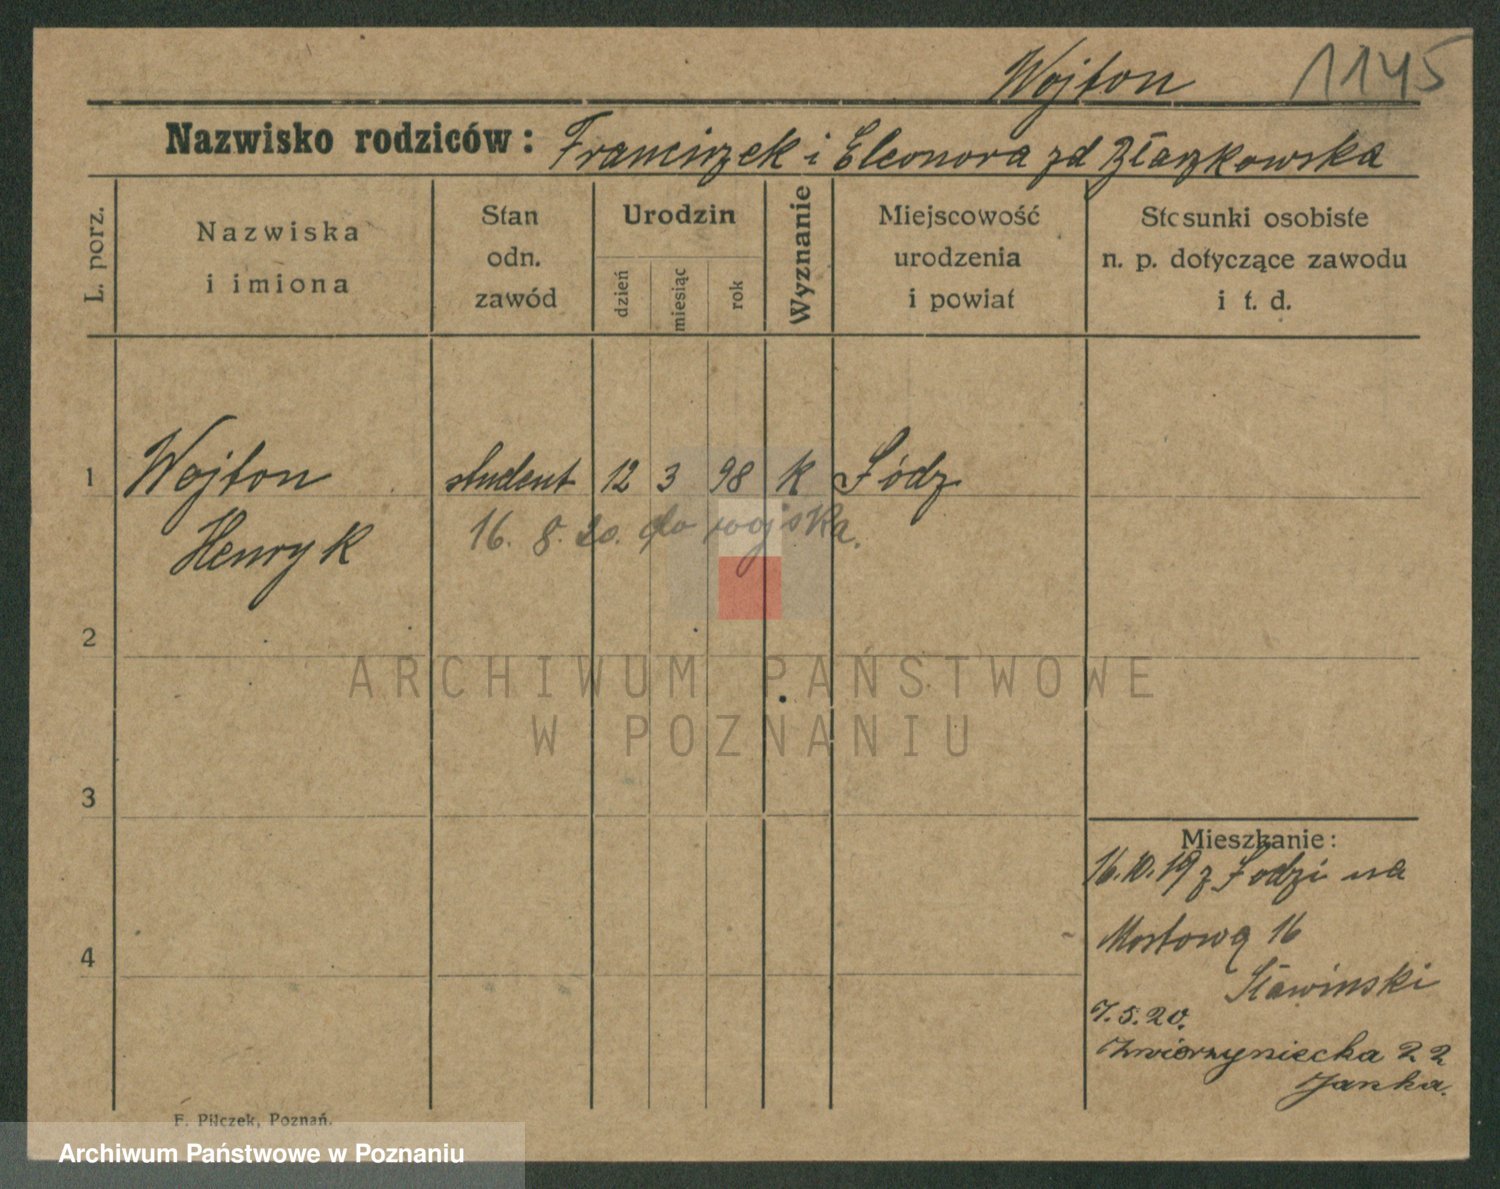 Wojton 1145
Nazwisko rodziców: Franciszek i Eleonora zd Złaszkowska
L. porz.
Nazwiska
i imiona
Stan
odn.
zawód
Urodzin
dzień
miesiąc
rok
Wyznanie
Miejscowość
urodzenia
i powiat
Stosunki osobiste
n. p. dotyczące zawodu
i t. d.
1 Wojton student 12 3 98 k Łódz
Henryk
16. 8. 20. do wojska.
2
3
4
Mieszkanie:
16.10.19 z Łodzi na
Mostową 16
Sławinski
7.5.20.
Zwierzyniecka 22
Janka.
F. Pilczek, Poznań.
ARCHIWUM PAŃSTWOWE
W POZNANIU
Archiwum Państwowe w Poznaniu